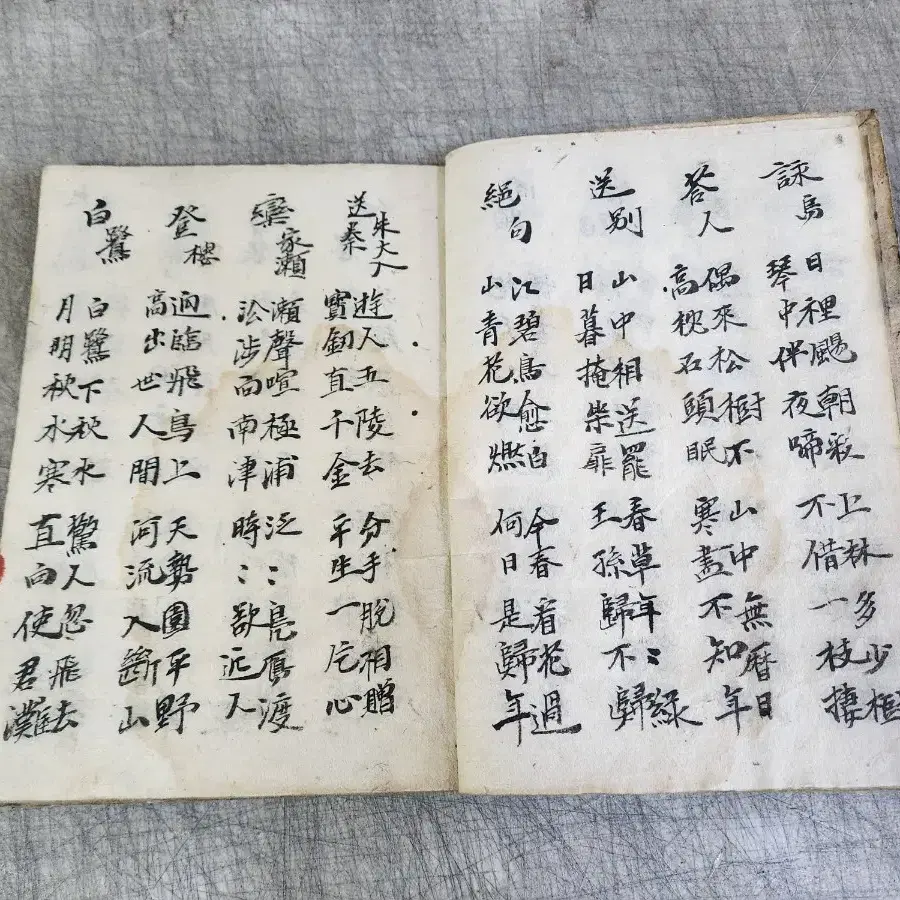 詠鳥
日裡颺朝彩
琴中伴夜啼
上林多少樹
不借一枝棲
答人
偶來松樹下
高枕石頭眠
山中無曆日
寒盡不知年
送別
山中相送罷
日暮掩柴扉
春草年〻綠
王孫歸不歸
絕句
江碧鳥愈白
山青花欲燃
今春看花過
何日是歸年
送朱大入秦
遊人五陵去
寶釰直千金
分手脫相贈
平生一片心
欒家瀨
瀨聲喧極浦
㳂涉面南津
泛〻鳧鴈渡
時〻欲近人
登樓
迥臨飛鳥上
高出世人間
天勢圍平野
河流入斷山
白鷺
白鷺下秋水
月明秋水寒
驚人忽飛去
直向使君灘